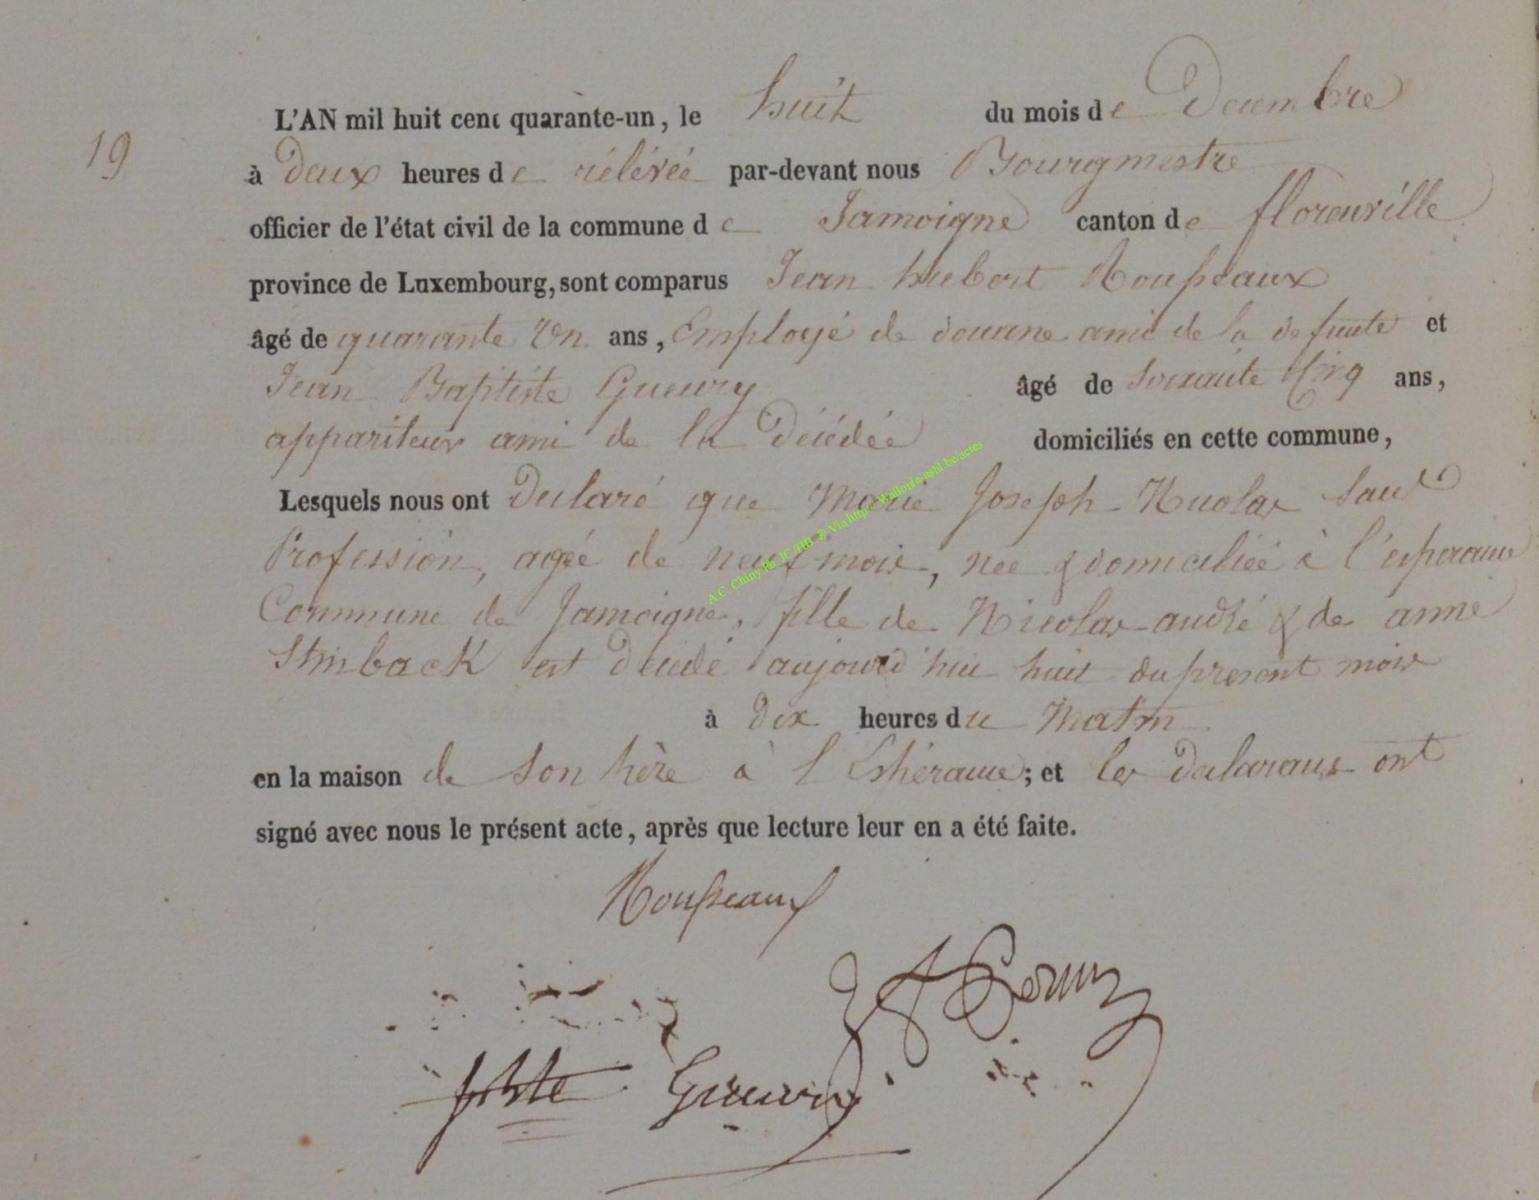 L'AN mil huit cent quarante-un, le huit du mois de Decembre
19
à deux heures de rélévée par-devant nous Bourgmestre
officier de l'état civil de la commune de Jamoigne canton de florenville
province de Luxembourg, sont comparus Jean hubert Roupseaux
âgé de quarante un ans, Employé de douane ami de la defunte et
Jean Baptiste Gueury âgé de soixante Cinq ans,
appariteur ami de la décédée domiciliés en cette commune,
Lesquels nous ont declaré que Marie Joseph Nicolas Sans
Profession, agée de neuf mois, née & domiciliée à l'esperance
Commune de Jamoigne, fille de Nicolas andré & de anne
Stinback est decedé aujourd'hui huit du present mois
à dix heures du Matin
en la maison de son père à l'Esperance; et les declarans ont
signé avec nous le présent acte, après que lecture leur en a été faite.
Roupseaux
Gueury